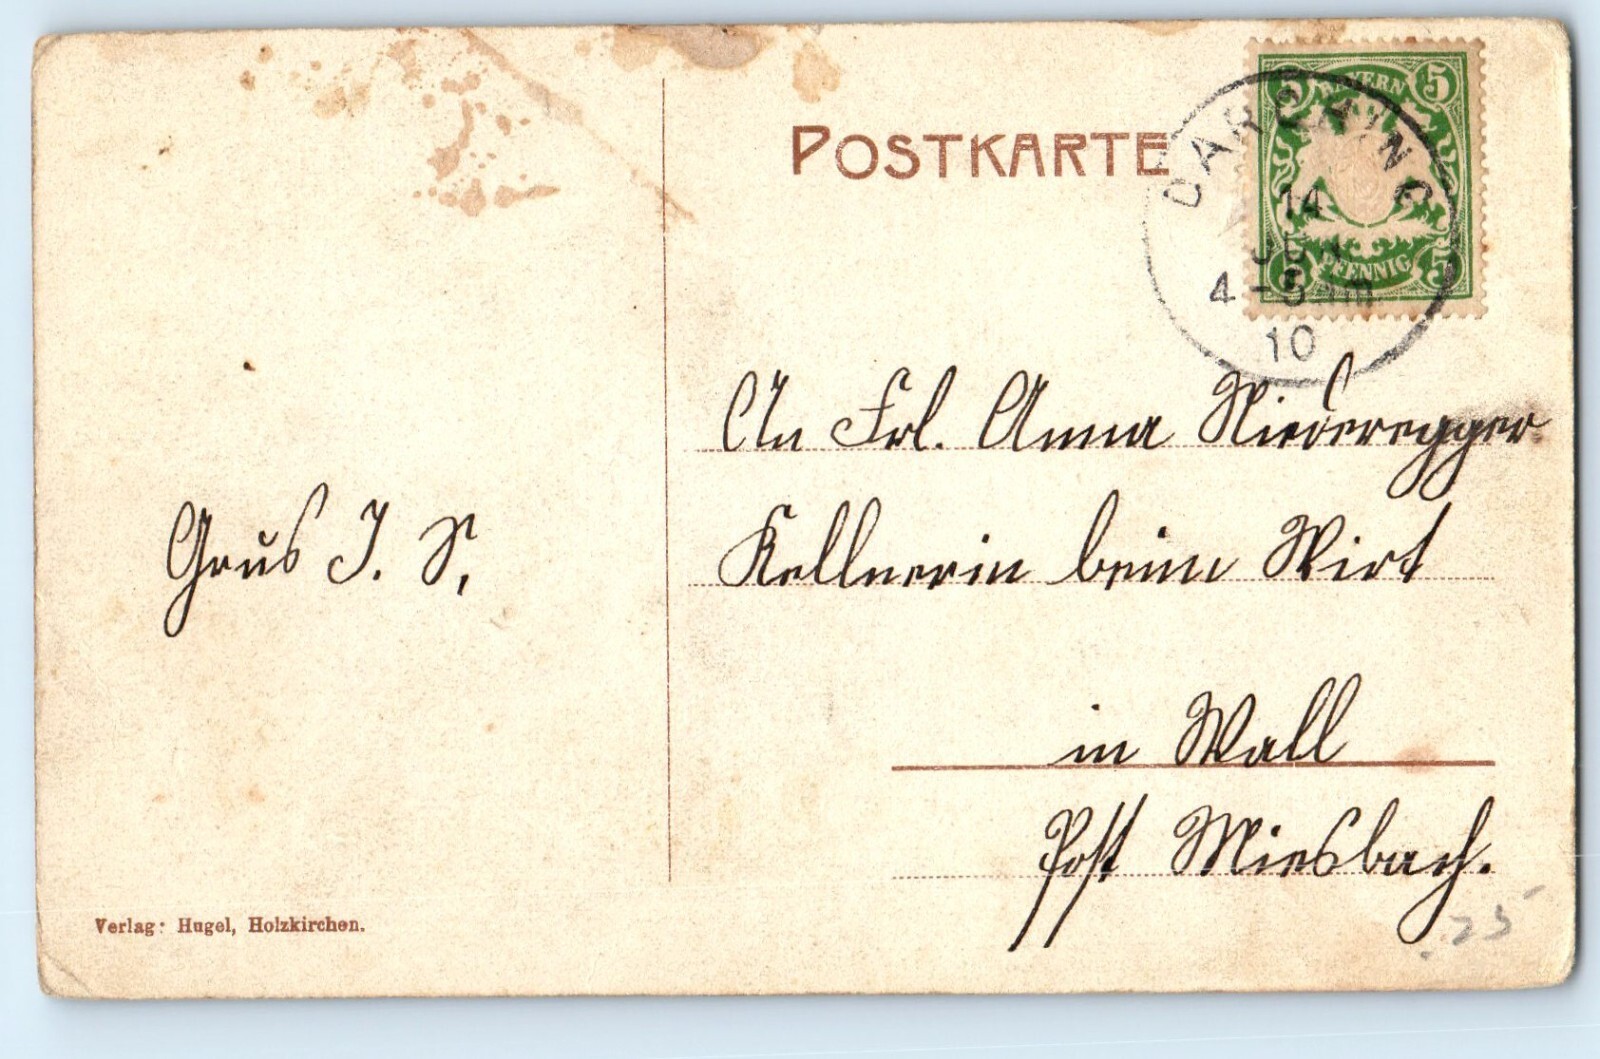 POSTKARTE
BAYERN
5
PFENNIG
DARCHING
14
JUN
4-5 Nm
10
An Frl. Anna Niederegger
Kellnerin beim Wirt
in Wall
Post Miesbach.
Grus J. S.
Verlag: Hugel, Holzkirchen.
25